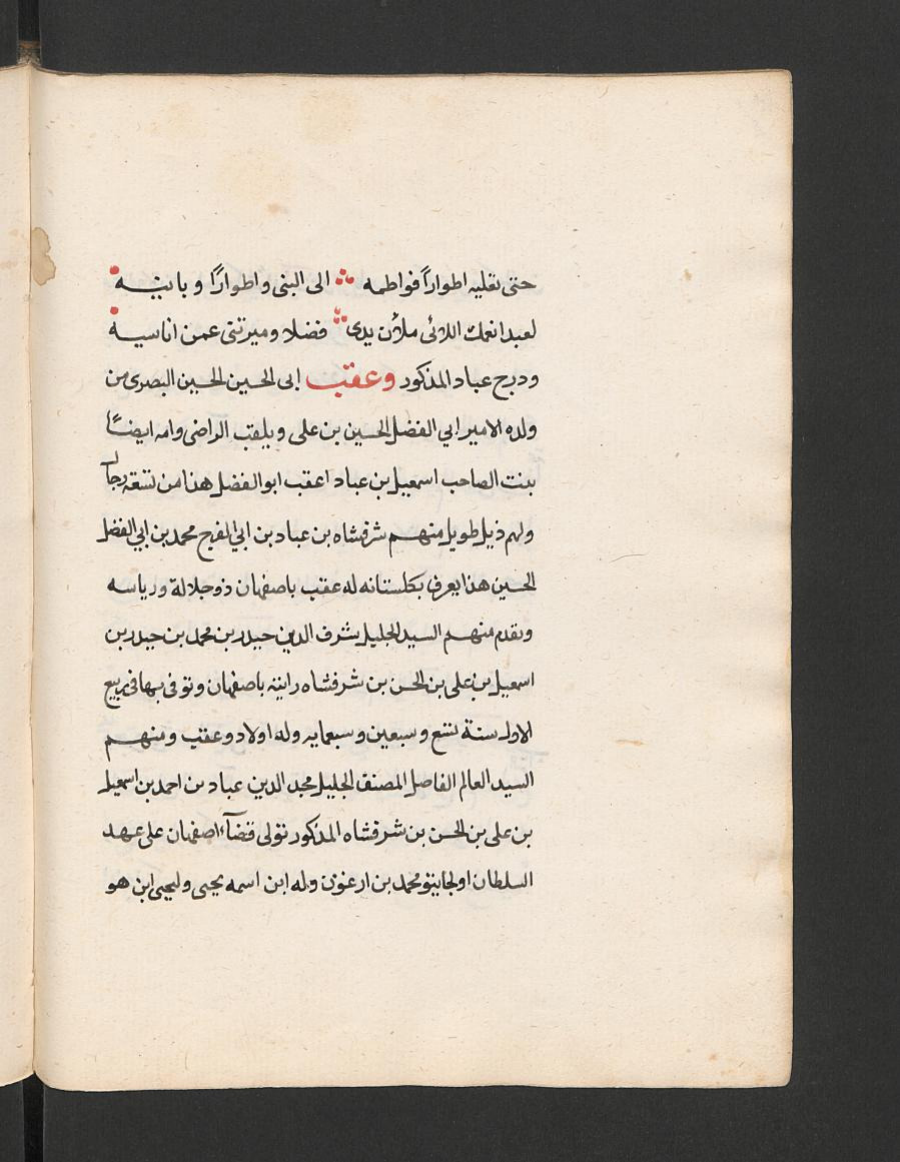 حتى تقليه اطواراً فواطمه ؞ الى البنى واطواراً وبانيـه
لعبد انعمك اللائى ملأن يدى ؞ فضلا وميرتنى عمن اناسيـه
ودرج عباد المذكور وعقب ابى الحسين الحسين البصرى من
ولده الامير ابي الفضل الحسين بن على ويلقب الراضى وامه ايضاً
بنت الصاحب اسمعيل بن عباد اعقب ابو الفضل هذا من تسعة رجال
ولهم ذيل طويل منهم شرفشاه بن عباد بن ابي الفرج محمد بن ابي الفضل
الحسين هذا يعرف بكلستانه له عقب باصفهان ذو جلالة ورياسه
وتقدم منهم السيد الجليل شرف الدين حيدر بن محمد بن حيدر بن
اسمعيل بن على بن الحسن بن شرفشاه رايته باصفهان وتوفى بها فى ربيع
الاول سنة تسع وسبعين وسبعمايه وله اولاد وعقب ومنهم
السيد العالم الفاصل المصنف الجليل مجد الدين عباد بن احمد بن اسمعيل
بن على بن الحسن بن شرفشاه المذكور تولى قضآء اصفهان على عهد
السلطان اولجايتو محمد بن ارغون وله ابن اسمه يحيى وليحيى ابن هو